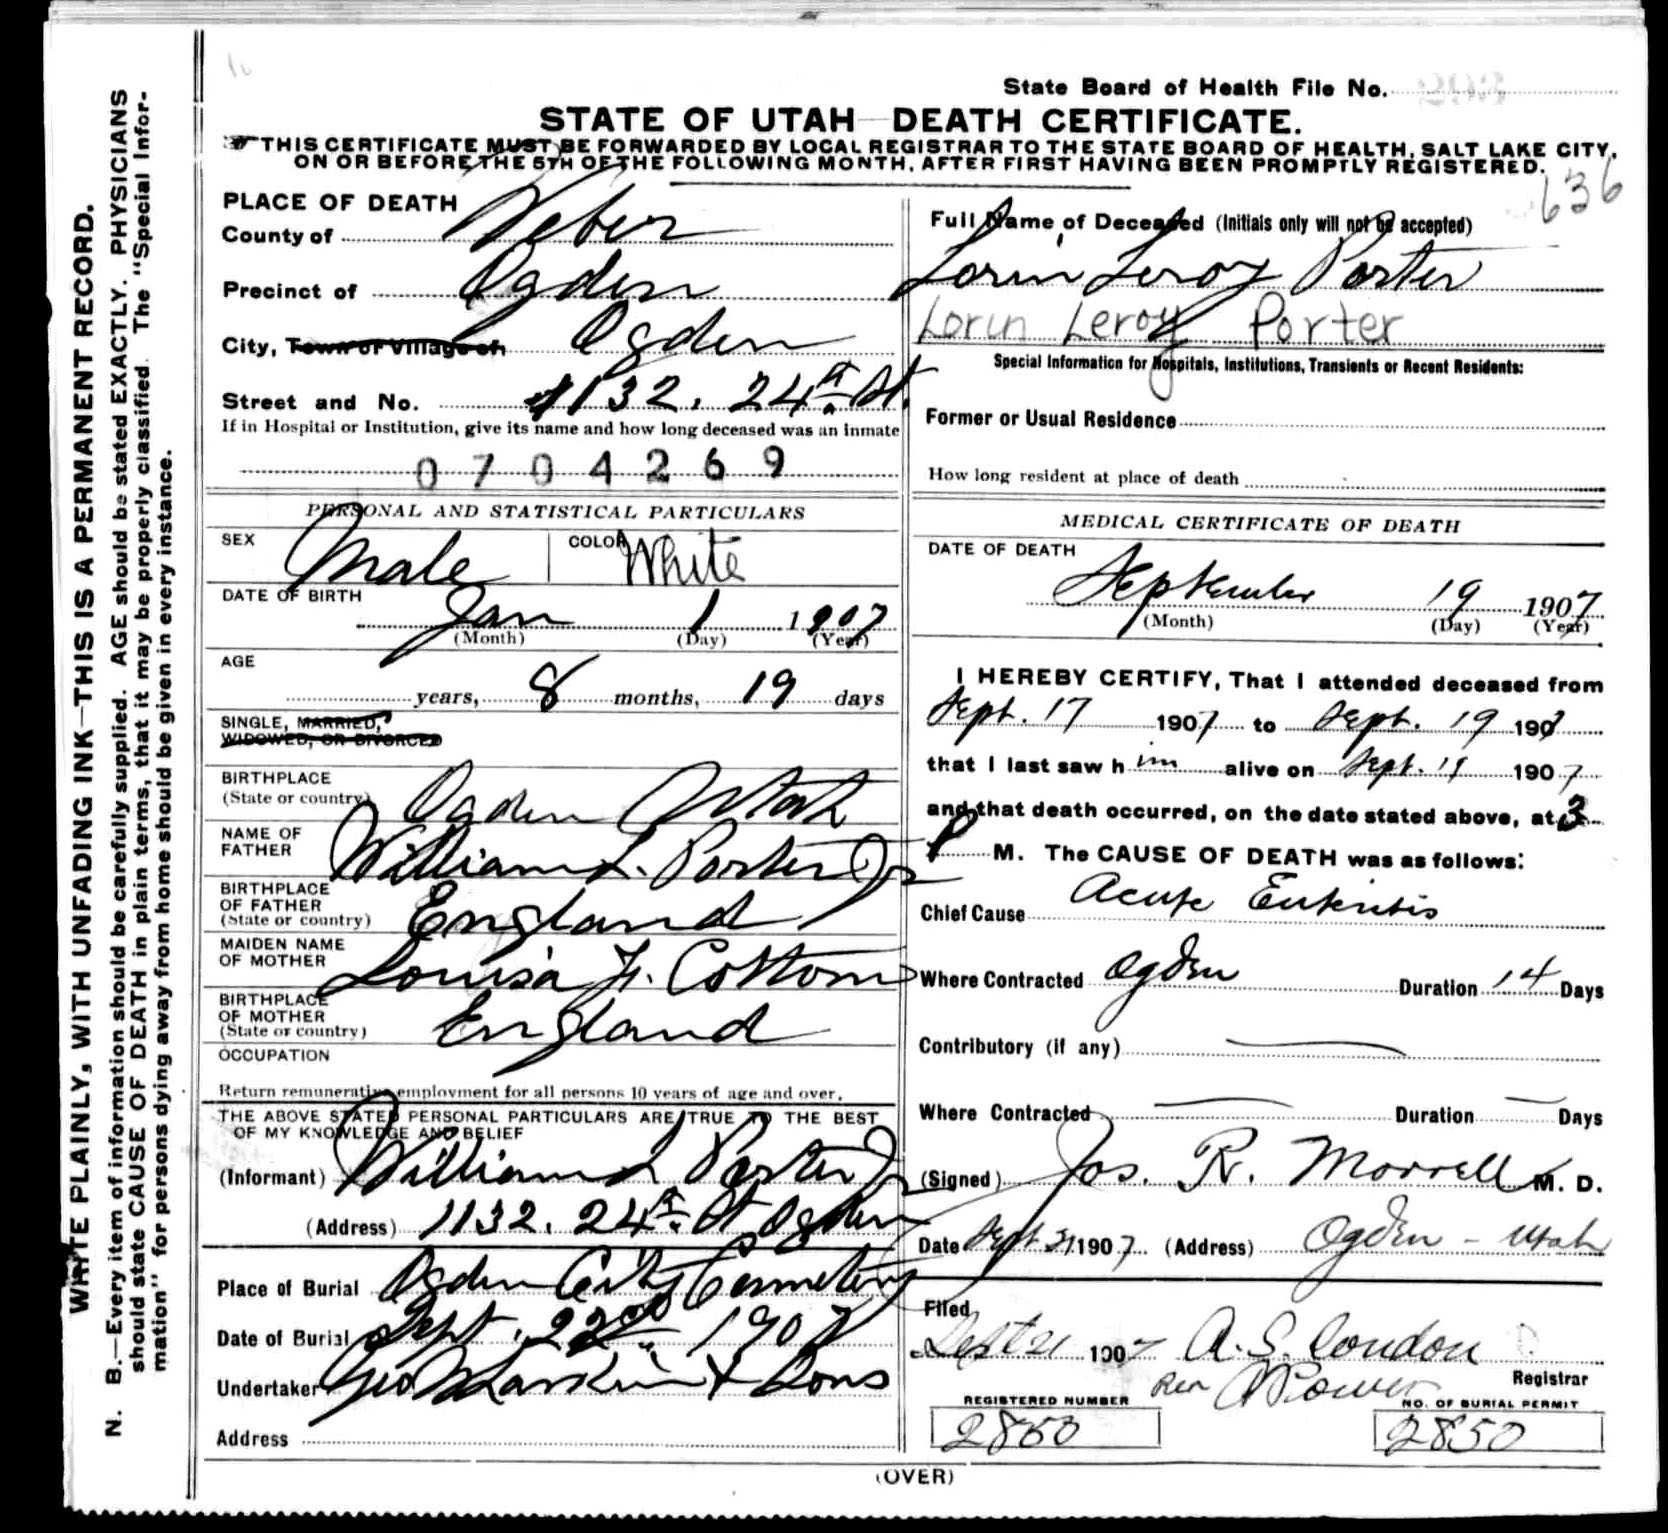 State Board of Health File No.
STATE OF UTAH—DEATH CERTIFICATE.
THIS CERTIFICATE MUST BE FORWARDED BY LOCAL REGISTRAR TO THE STATE BOARD OF HEALTH, SALT LAKE CITY,
ON OR BEFORE THE 5TH OF THE FOLLOWING MONTH, AFTER FIRST HAVING BEEN PROMPTLY REGISTERED.
636
WRITE PLAINLY, WITH UNFADING INK—THIS IS A PERMANENT RECORD.
N. B.—Every item of information should be carefully supplied. AGE should be stated EXACTLY. PHYSICIANS
should state CAUSE OF DEATH in plain terms, that it may be properly classified. The "Special Infor-
mation" for persons dying away from home should be given in every instance.
PLACE OF DEATH
County of Weber
Precinct of Ogden
City, Town or Village of Ogden
Street and No. 1132. 24th St.
If in Hospital or Institution, give its name and how long deceased was an inmate
0704269
PERSONAL AND STATISTICAL PARTICULARS
SEX Male COLOR White
DATE OF BIRTH
Jan 1 1907
(Month) (Day) (Year)
AGE
years, 8 months, 19 days
SINGLE, MARRIED,
WIDOWED, OR DIVORCED
BIRTHPLACE
(State or country) Ogden Utah
NAME OF
FATHER William L. Porter Jr
BIRTHPLACE
OF FATHER
(State or country) England
MAIDEN NAME
OF MOTHER Louisa F. Cottom
BIRTHPLACE
OF MOTHER
(State or country) England
OCCUPATION
Return remunerative employment for all persons 10 years of age and over.
THE ABOVE STATED PERSONAL PARTICULARS ARE TRUE TO THE BEST
OF MY KNOWLEDGE AND BELIEF
(Informant) William L Porter Jr
(Address) 1132. 24th St Ogden
Place of Burial Ogden City Cemetery
Date of Burial Sept. 22nd 1907
Undertaker Geo W Larkin & Sons
Address
Full Name of Deceased (Initials only will not be accepted)
Lorin Leroy Porter
Lorin Leroy Porter
Special Information for Hospitals, Institutions, Transients or Recent Residents:
Former or Usual Residence
How long resident at place of death
MEDICAL CERTIFICATE OF DEATH
DATE OF DEATH
September 19 1907
(Month) (Day) (Year)
I HEREBY CERTIFY, That I attended deceased from
Sept. 17 1907 to Sept. 19 1907
that I last saw him alive on Sept. 19 1907
and that death occurred, on the date stated above, at 3
P M. The CAUSE OF DEATH was as follows:
Chief Cause Acute Enteritis
Where Contracted Ogden Duration 14 Days
Contributory (if any)
Where Contracted Duration Days
(Signed) Jos. R. Morrell M. D.
Date Sept 1907 (Address) Ogden - Utah
Filed
Sept 21 1907 A. S. Condon
Registrar
REGISTERED NUMBER NO. OF BURIAL PERMIT
2850 2850
(OVER)